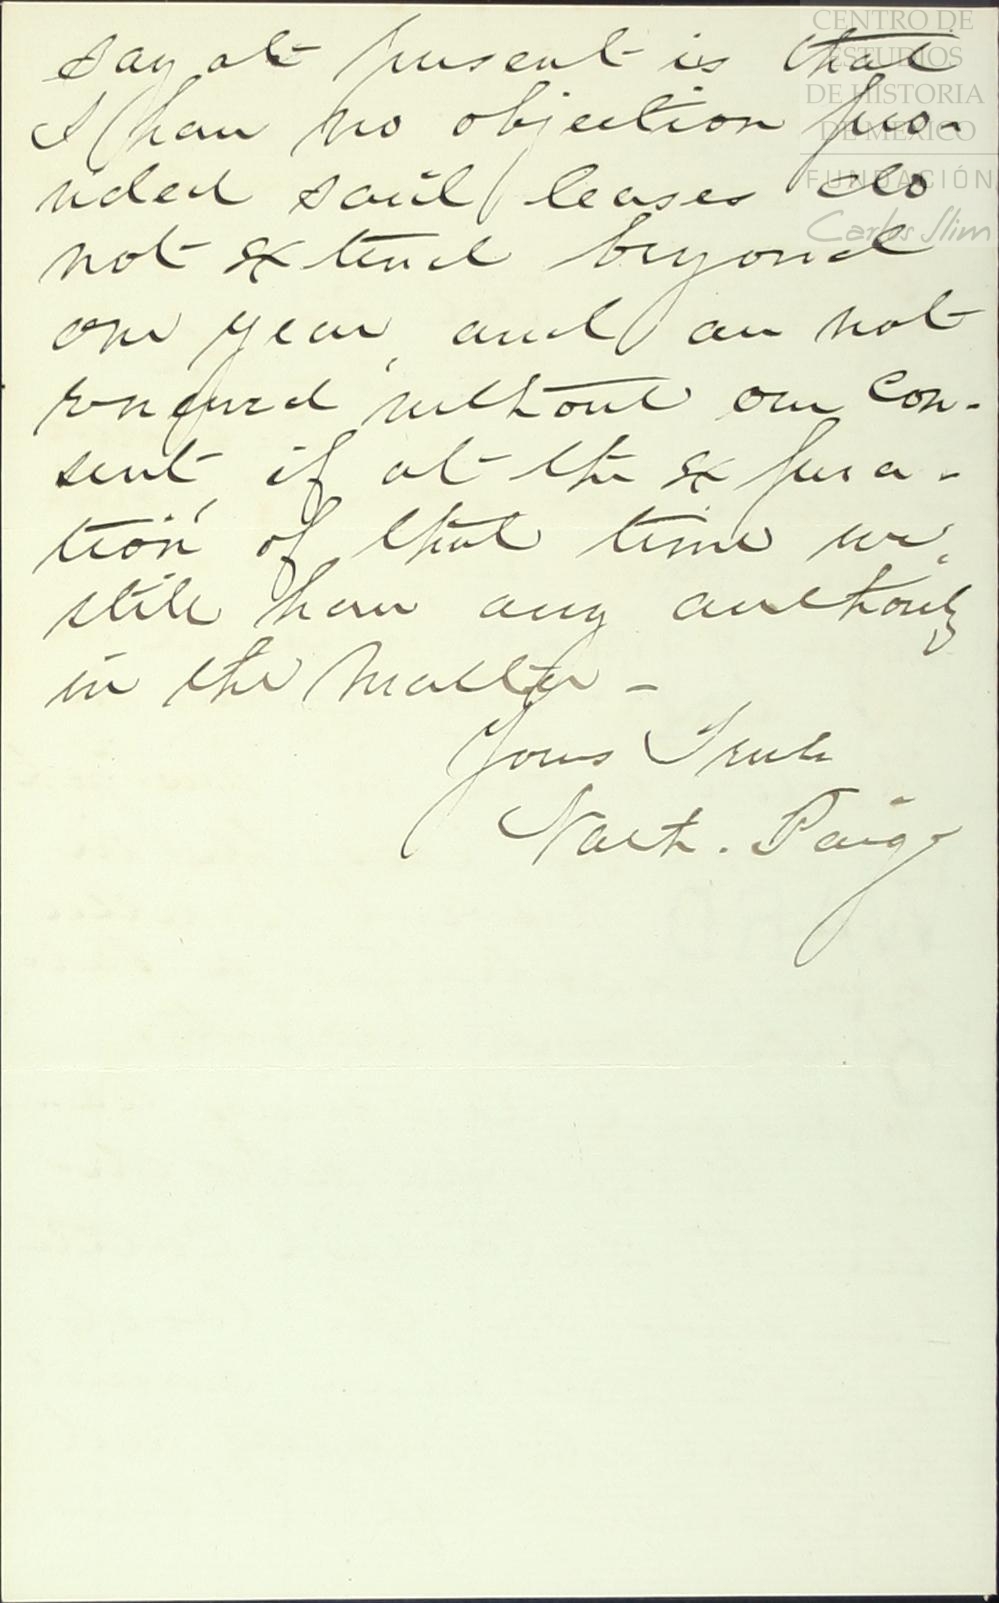 CENTRO DE
ESTUDIOS
DE HISTORIA
DE MÉXICO
FUNDACIÓN
Carlos Slim
say at present is that
I have no objection pro-
vided said leases do
not extend beyond
one year, and are not
renewed without our con-
sent, if at the expira-
tion of that time we
still have any authority
in the matter -
Yours Truly
Nath. Paige